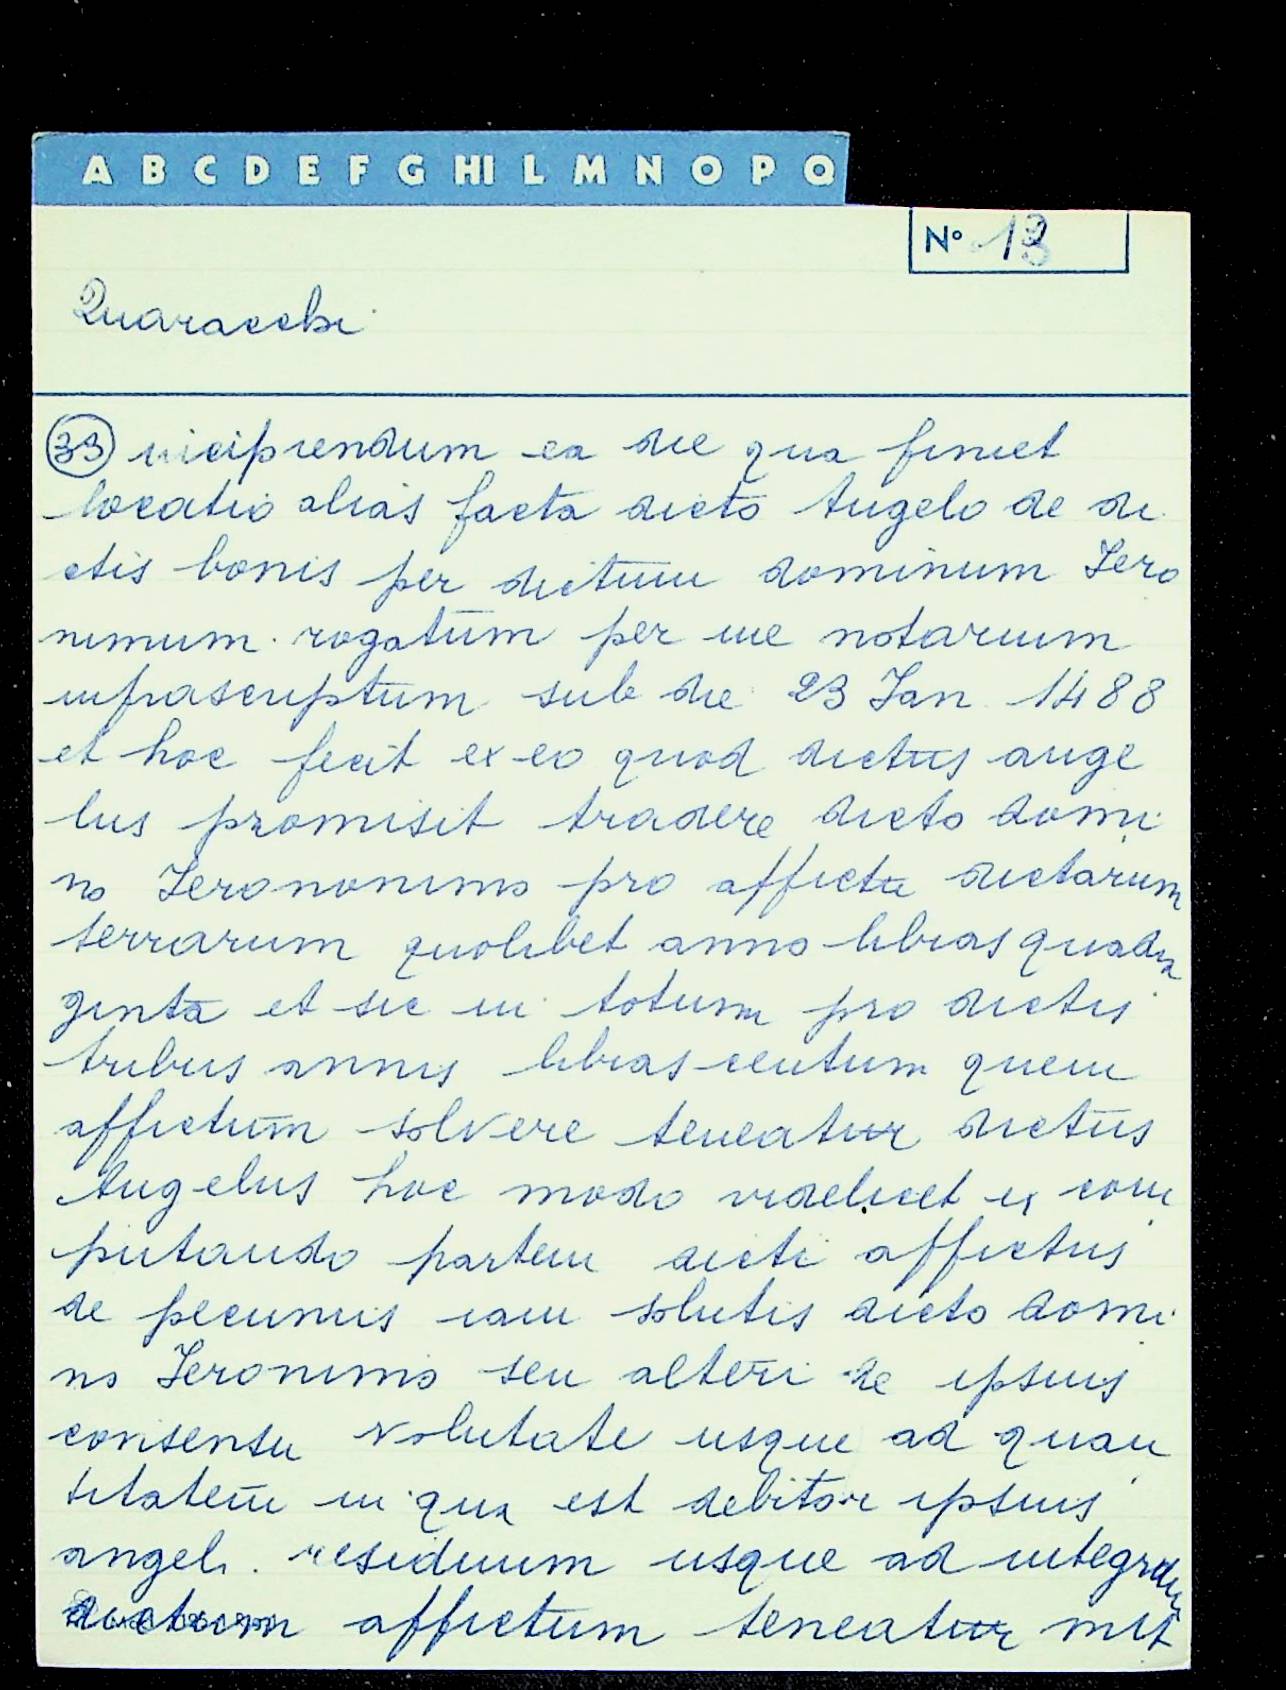 A B C D E F G HI L M N O P Q
N° 13
Quaracchi
33 incipiendum ea die qua finiet
locatio alias facta dicto Angelo de di
ctis bonis per dictum dominum Jero
nimum rogatum per me notarium
infrascriptum sub die 23 Jan 1488
et hoc fecit ex eo quod dictus ange
lus promisit tradere dicto domi
no Jerononimo pro affictu dictarum
terrarum quolibet anno libras quadra
ginta et sic in totum pro dictis
tribus annis libras centum quem
affictum solvere teneatur dictus
Angelus hoc modo videlicet ex com
putando partem dicti affictus
de pecuniis iam solutis dicto domi
no Jeronimo seu alteri de ipsius
consensu volutate usque ad quan
titatem in qua est debitor ipsius
angeli. residuum usque ad integrum
dictum affictum teneatur